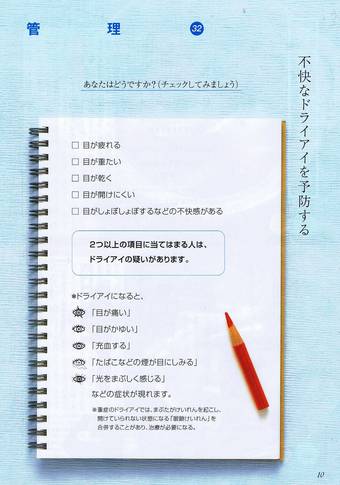 管理 32
不快なドライアイを予防する
あなたはどうですか?(チェックしてみましょう)
□ 目が疲れる
□ 目が重たい
□ 目が乾く
□ 目が開けにくい
□ 目がしょぼしょぼするなどの不快感がある
2つ以上の項目に当てはまる人は、
ドライアイの疑いがあります。
*ドライアイになると、
「目が痛い」
「目がかゆい」
「充血する」
「たばこなどの煙が目にしみる」
「光をまぶしく感じる」
などの症状が現れます。
*重症のドライアイでは、まぶたがけいれんを起こし、
開けていられない状態になる「眼瞼けいれん」を
合併することがあり、治療が必要になる。
10